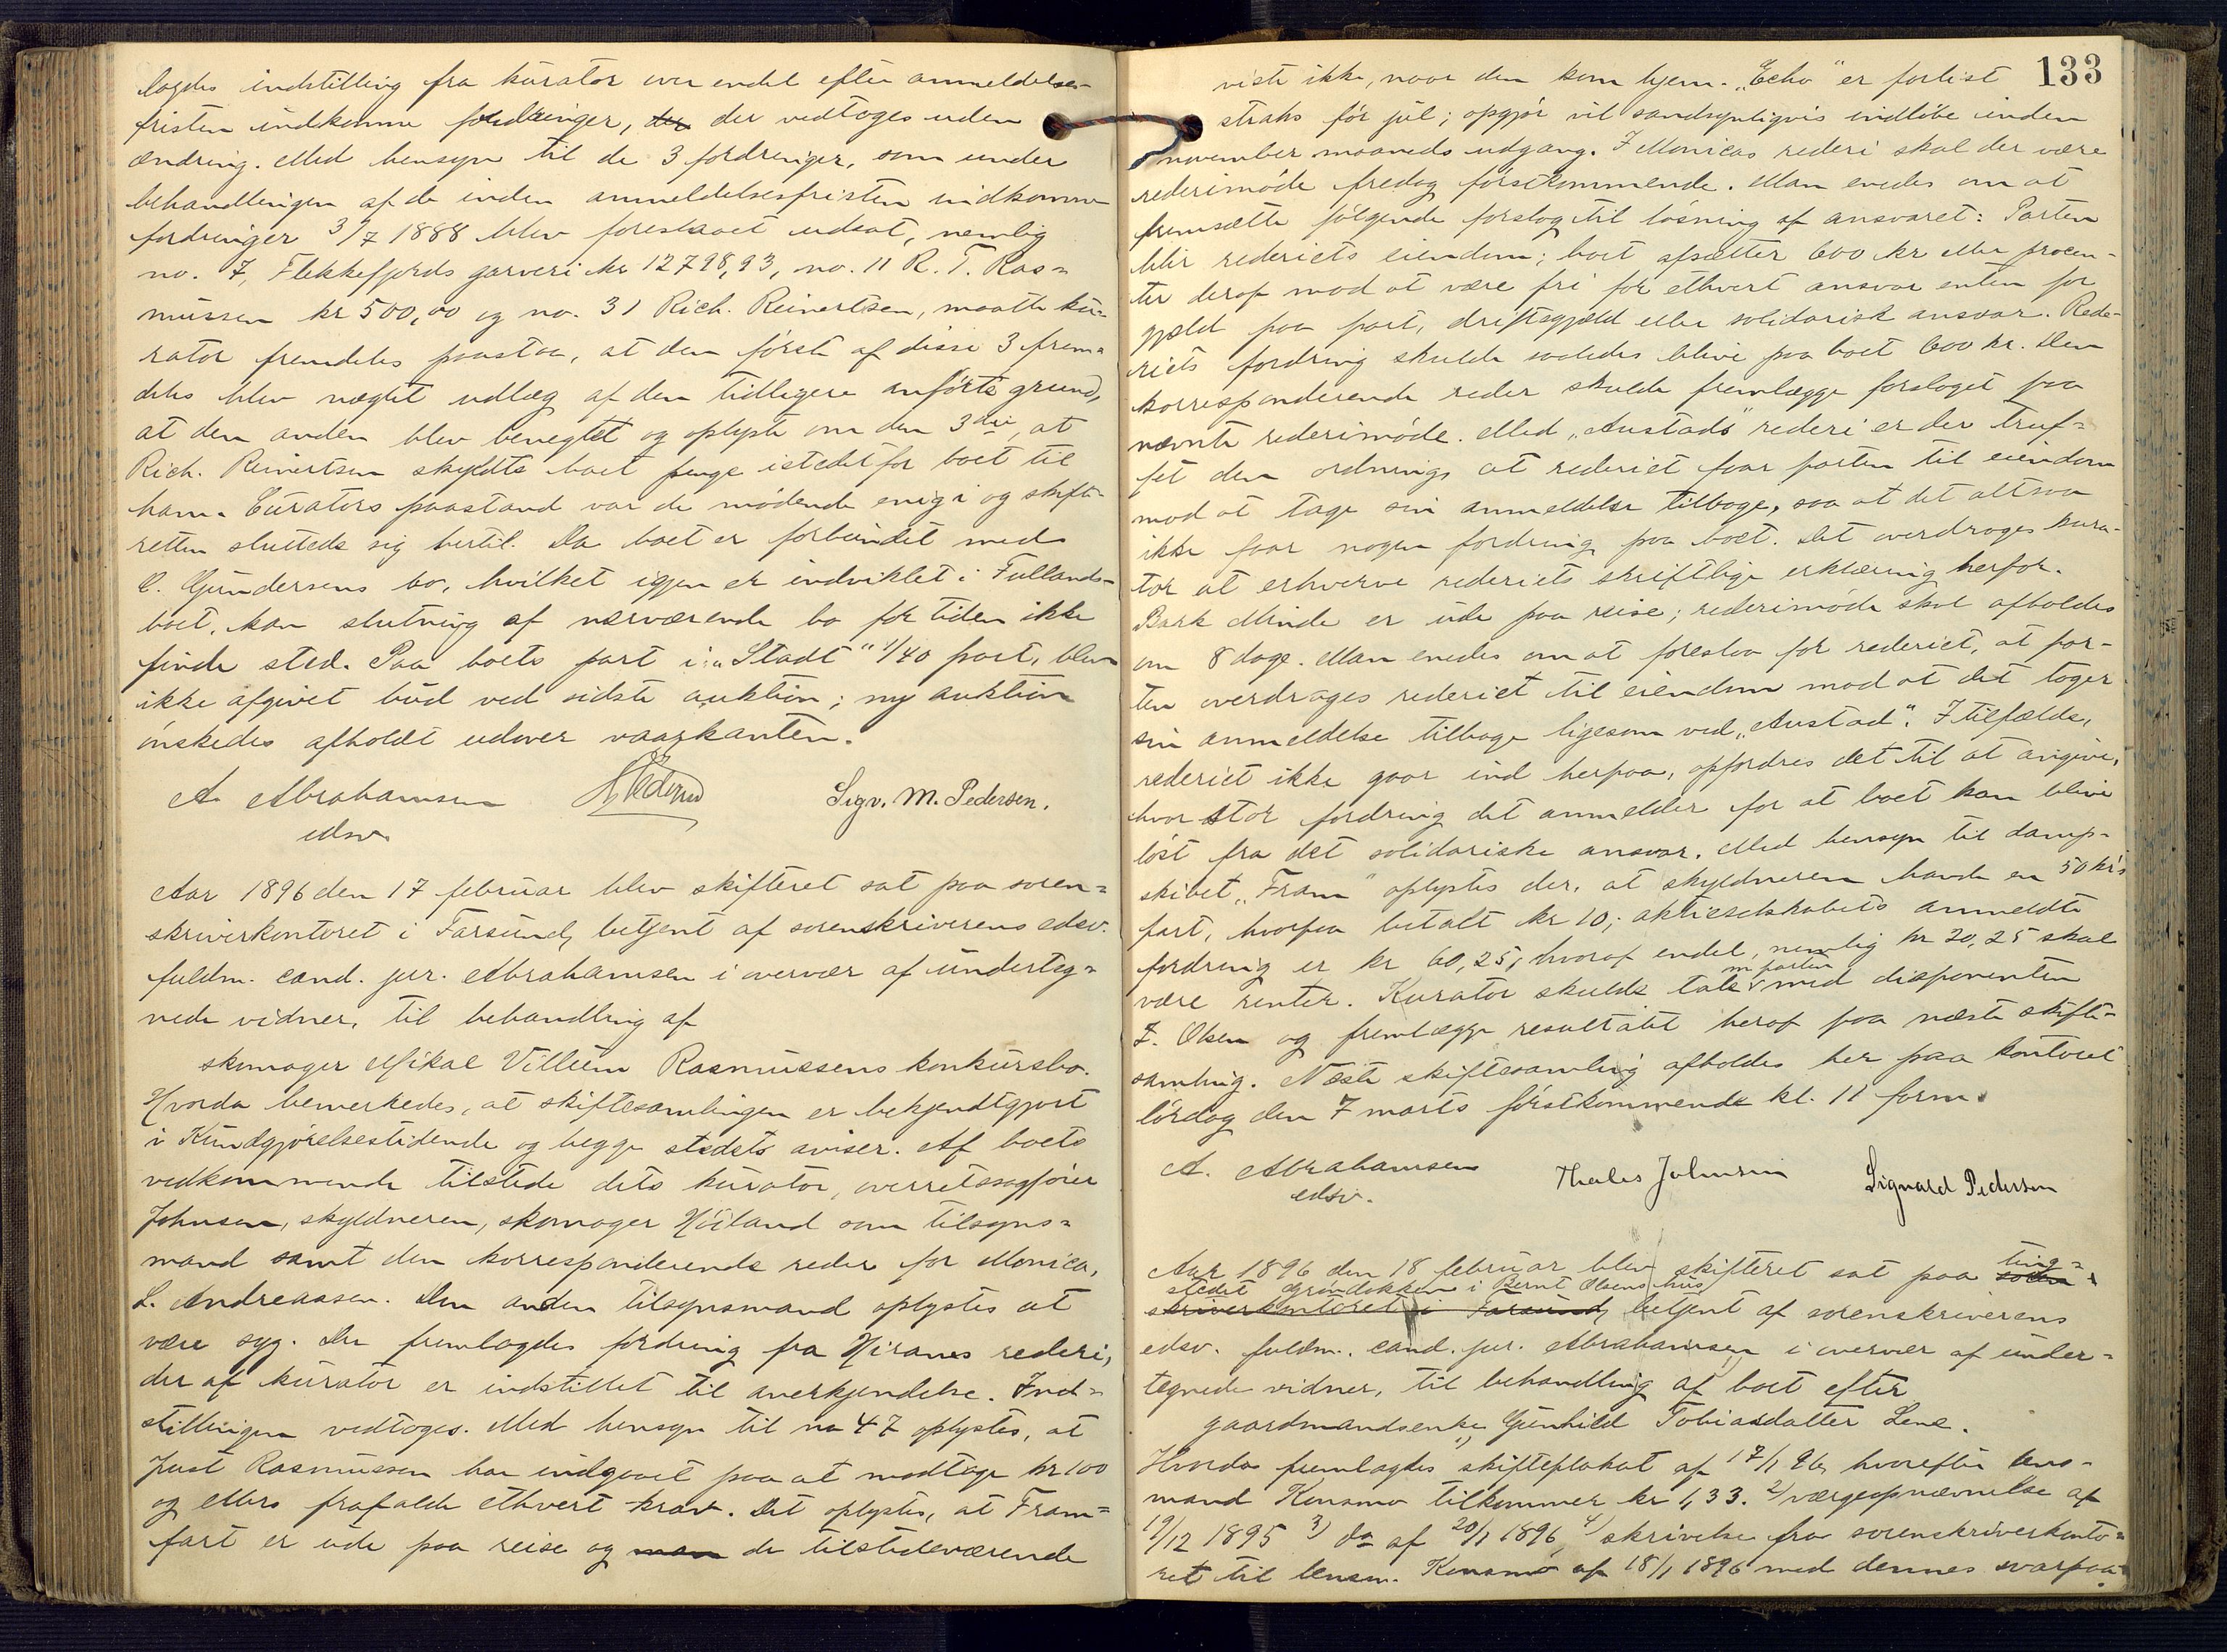 lagdes indstilling fra kurator over endel efter anmeldelses-
fristen indkomne fordringer, der der vedtoges uden
ændring. Med hensyn til de 3 fordringer, som under
behandlingen af de inden anmeldelsesfristen indkomne
fordringer 3/7 1888 blev foreslaaet udsat, nemlig
no. 7, Flekkefjords garveri kr 12798,93, no. 11 R. T. Ras=
mussen kr 500,00 og no. 31 Rich. Reinertsen, maatte ku=
rator fremdeles paastaa, at den første af disse 3 frem=
deles blev nægtet udlæg af den tidligere anførte grund,
at den anden blev benegtet og oplyste om den 3die, at
Rich. Reinertsen skyldte boet penge istedetfor boet til
ham. Curators paastand var de mødende enig i og skifte-
retten sluttede sig hertil. Da boet er forbundet med
C. Gundersens bo, hvilket igjen er indviklet i Fullands-
boet, kan slutning af nærværende bo for tiden ikke
finde sted. Paa boets part i "Stadt" 1/40 part, blev
ikke afgivet bud ved sidste auktion; ny auktion
ønskedes afholdt udover vaarkanten.
A. Abrahamsen Sigv. M. Pedersen.
edsv.
Aar 1896 den 17 februar blev skifteret sat paa soren=
skriverkontoret i Farsund, betjent af sorenskriverens edsv.
fuldm. cand. jur. Abrahamsen i overvær af underteg=
nede vidner, til behandling af
skomager Mikal Villum Rasmussens konkursbo.
Hvorda bemerkedes, at skiftesamlingen er bekjendtgjort
i Kundgjørelsestidende og begge stedets aviser. Af boets
vedkommende tilstede dets kurator, overretssagfører
Johnsen, skyldneren, skomager Høiland som tilsyns=
mand samt den korresponderende reder for Monica,
L. Andreassen. Den anden tilsynsmand oplystes at
være syg. Der fremlagdes fordring fra Hiranes rederi,
der af kurator er indstillet til anerkjendelse. Ind=
stillingen vedtoges. Med hensyn til no 47 oplystes, at
Just Rasmussen har indgaaet paa at modtage kr 100
og ellers frafalde ethvert krav. Det oplystes, at Fram=
fart er ude paa reise og man de tilstedeværende
133
viste ikke, naar den kom hjem. "Echo" er forlist
straks før jul; opgjør vil sandsynligvis indløbe inden
november maaneds udgang. I Monicas rederi skal der være
rederimøde fredag førstkommende. Man enedes om at
fremsætte følgende forslag til løsning af ansvaret: Parten
blir rederiets eiendom; boet afsætter 600 kr eller procen-
ter deraf mod at være fri for ethvert ansvar enten for
gjæld paa part, driftsgjæld eller solidarisk ansvar. Rede-
riets fordring skulde saaledes blive paa boet 600 kr. Den
korresponderende reder skulde fremlægge forslaget paa
nævnte rederimøde. Med "Austads" rederi er der truf=
fet den ordning, at rederiet faar parten til eiendom
mod at tage sin anmeldelse tilbage, saa at det altsaa
ikke faar nogen fordring paa boet. Det overdroges kura-
tor at erhverve rederiets skriftlige erklæring herfor.
Bark Minde er ude paa reise; rederimøde skal afholdes
om 8 dage. Man enedes om at foreslaa for rederiet, at par-
ten overdrages rederiet til eiendom mod at det tager
sin anmeldelse tilbage ligesom ved "Austad". I tilfælde,
rederiet ikke gaar ind herpaa, opfordres det til at angive,
hvor stor fordring det anmelder for at boet kan blive
løst fra det solidariske ansvar. Med hensyn til damp-
skibet "Fram" oplystes der, at skyldneren havde en 50 kr's
part, hvorpaa betalt kr 10; aktieselskabets anmeldte
fordring er kr 60,25, hvoraf endel, nemlig kr 20,25 skal
være renter. Kurator skulde tale om parten med disponenten
Z. Olsen og fremlægge resultatet heraf paa næste skifte-
samling. Næste skiftesamling afholdes her paa kontoret
lørdag den 7 marts førstkommende kl. 11 form.
A. Abrahamsen Thales Johnsen Sigvald Pedersen
edsv.
Aar 1896 den 18 februar blev skifteret sat paa soren ting=
stedet Grøndokken i Bernt Olsens hus
skriverkontoret i Farsund, betjent af sorenskriverens
edsv. fuldm. cand. jur. Abrahamsen i overvær af under=
tegnede vidner, til behandling af boet efter
gaardmandsenke Gunhild Tobiasdatter Lene.
Hvorda fremlagdes skifteplakat af 17/1 96, hvorefter lens-
mand Konsmo tilkommer kr 1,33. 2) værgeopnævnelse af
19/12 1895 3) do af 20/1 1896, 4) skrivelse fra sorenskriverkonto=
ret til lensm. Konsmo af 18/1 1896 med dennes svarpaa-